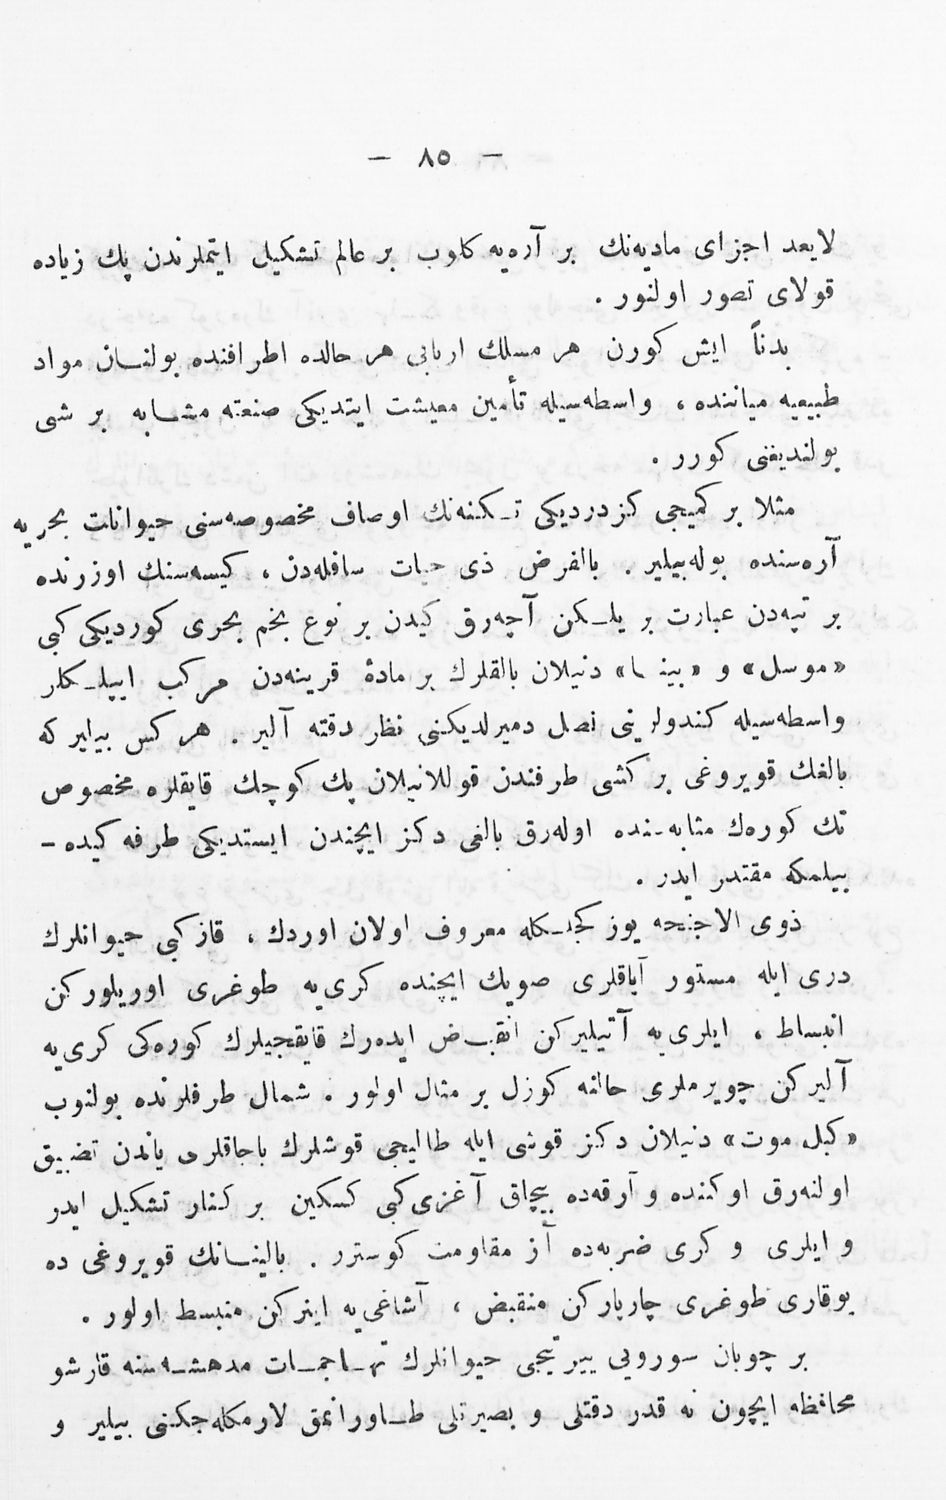 — ٨٥ —
لايعد اجزاى ماديه‌نك بر آره‌يه كلوب بر عالم تشكيل ايتملرندن پك زياده
قولاى تصور اولنور .
بدناً ايش كورن هر مسلك اربابى هر حالده اطرافنده بولنسان مواد
طبيعيه مياننده ، واسطه‌سيله تأمين معيشت ايتديكى صنعته مشابه بر شى
بولنديغنى كورر .
مثلا بر كميجى كزدرديكى تكننه‌نك اوصاف مخصوصه‌سنى حيوانات بحريه
آره‌سنده بوله‌بيلير . بالفرض ذى حيات سافله‌دن ، كيسه‌سنك اوزرنده
بر تپه‌دن عبارت بر يلكن آچه‌رق كيدن بر نوع نجم بحرى كورديكى كبى
«موسل» و «پينا» دنيلان بالقلرك بر مادۀ قرينه‌دن مركب ايپلكلر
واسطه‌سيله كندولرينى نصل دميرلديكنى نظر دقته آلير . هر كس بيلير كه
بالغك قويروغى بر كشى طرفندن قوللانيلان پك كوچك قايقلره مخصوص
تك كوره‌ك مثابه‌سنده اوله‌رق بالغى دكز ايچندن ايستديكى طرفه كيده -
بيلمكه مقتدر ايدر .
ذوى الاجنحه يوز كجلكله معروف اولان اوردك ، قاز كبى حيوانلرك
درى ايله مستور آياقلرى صويك ايچنده كرى‌يه طوغرى اوريلوركن
انبساط ، ايلرى‌يه آتيليركن انقباض ايده‌رك قايقجيلرك كوره‌كى كرى‌يه
آليركن چويرملرى حالنه كوزل بر مثال اولور . شمال طرفلرنده بولنوب
«كيل موت» دنيلان دكز قوشى ايله طاليجى قوشلرك باجاقلرى ياندن تضييق
اولنه‌رق اوكنده و آرقه‌ده بيچاق آغزى كبى كسكين بر كنار تشكيل ايدر
و ايلرى و كرى ضربه‌ده آز مقاومت كوسترر . بالينانك قويروغى ده
يوقارى طوغرى چارپاركن منقبض ، آشاغى‌يه اينركن منبسط اولور .
بر چوبان سورويى ييرتيجى حيوانلرك تهاجمات مدهشه‌سنه قارشو
محافظه ايچون نه قدر دقتلى و بصيرتلى طاورانمق لازمكله‌جكنى بيلير و